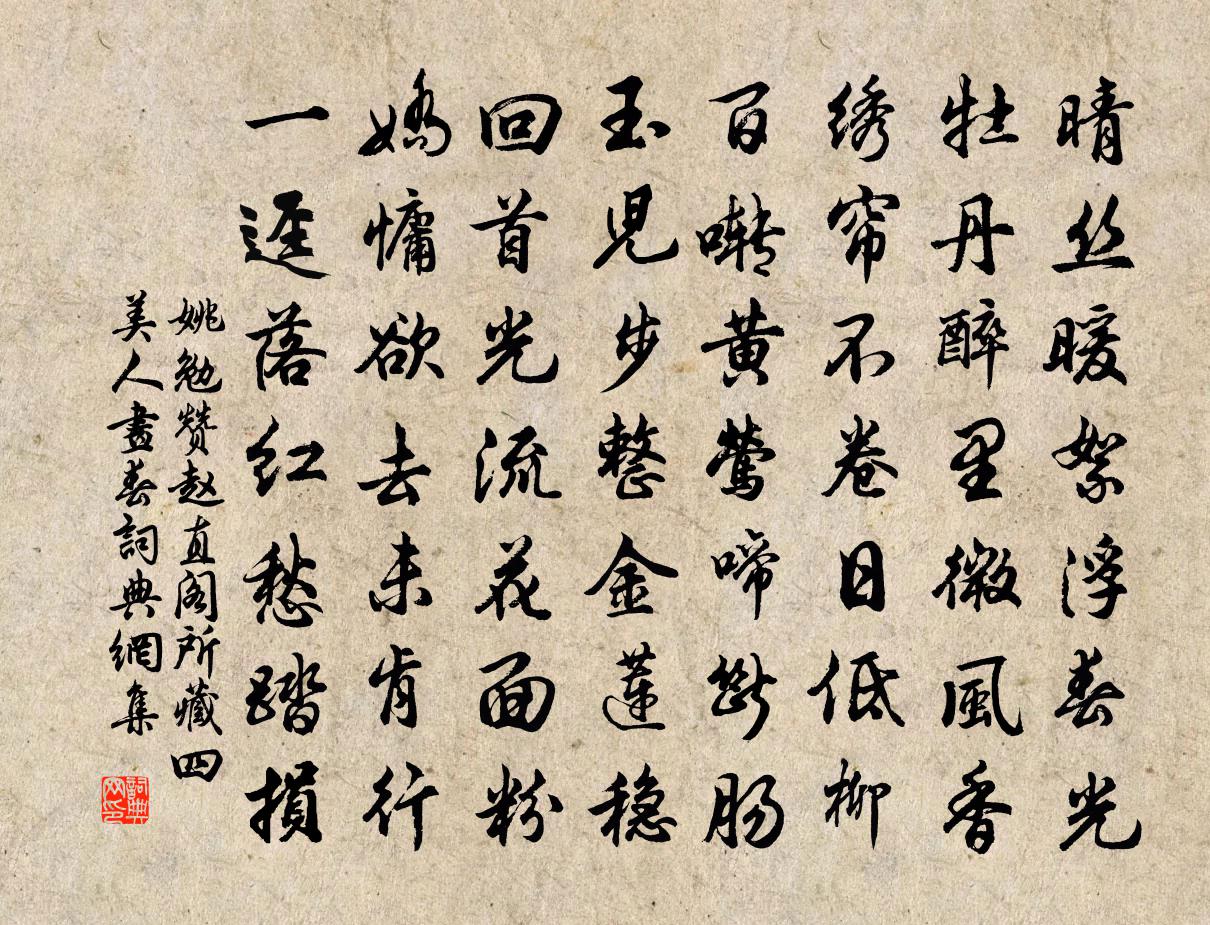 晴丝暖絮浮春光
牡丹醉里微风香
绣帘不卷日低柳
百啭黄莺啼断肠
玉儿步整金莲稳
回首光流花面粉
娇慵欲去未肯行
一径落红愁踏损
姚勉赞赵直阁所藏四
美人画春词典网集
词典
网印